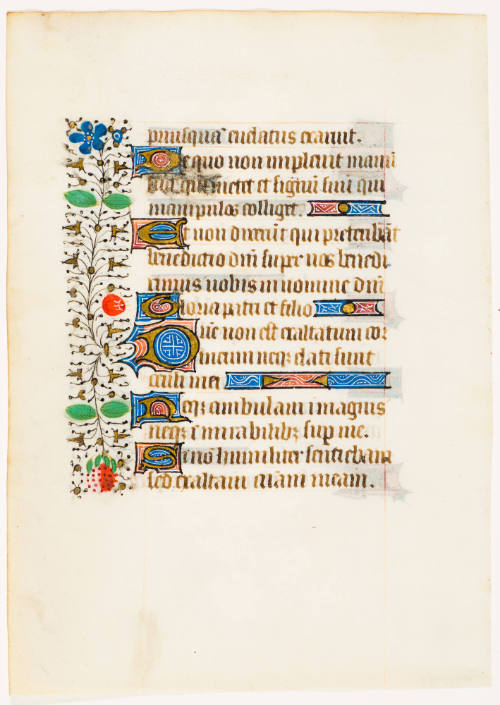 priusqua euelatus erauit.
De quo non impleuit manu
sua qui metet et sinu suu qui
manipulos colliget.
Et non dixerut qui preteribat
benedictio dni super uos benedi
ximus uobis in nomine dni
Gloria patri et filio
Dne non est exaltatum cor
meum neqz elati sunt
oculi mei
Neqz ambulaui i magnis
neqz i mirabilibz sup me.
Si no humiliter sentiebam
sed exaltaui aiam meam.